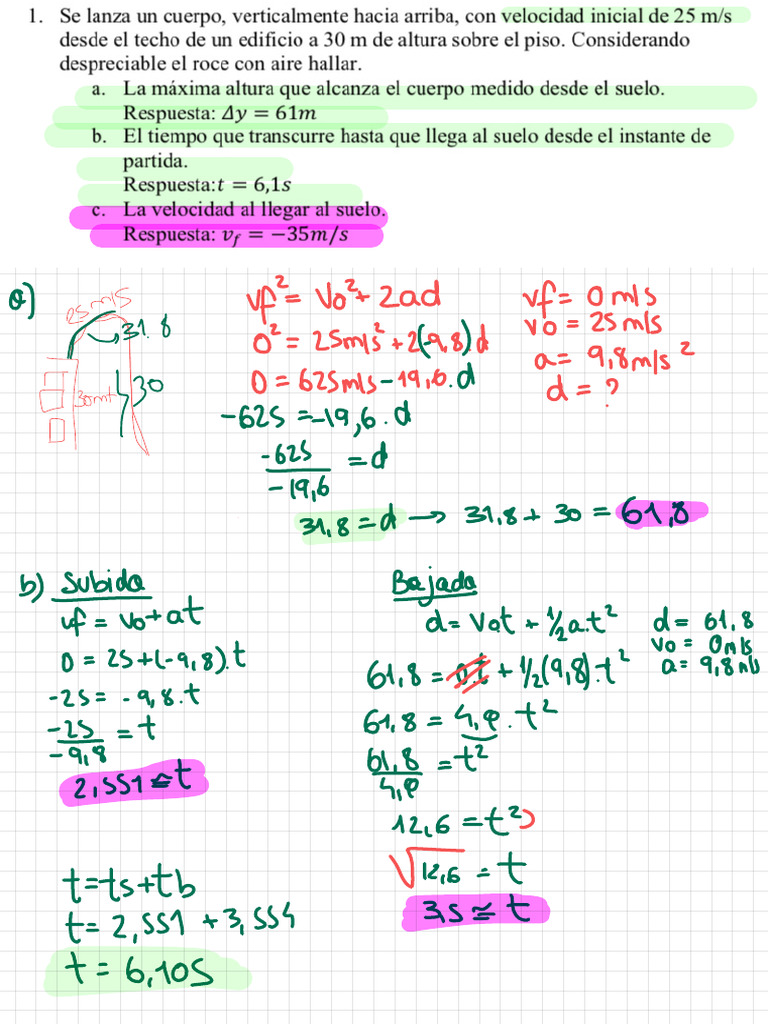 1. Se lanza un cuerpo, verticalmente hacia arriba, con velocidad inicial de 25 m/s
desde el techo de un edificio a 30 m de altura sobre el piso. Considerando
despreciable el roce con aire hallar.
a. La máxima altura que alcanza el cuerpo medido desde el suelo.
Respuesta: Δy = 61m
b. El tiempo que transcurre hasta que llega al suelo desde el instante de
partida.
Respuesta:t = 6,1s
c. La velocidad al llegar al suelo.
Respuesta: v_f = −35m/s
a)
25 m/s
31.8
30mt
30
vf² = Vo² + 2ad
0² = 25m/s² + 2(-9,8).d
0 = 625m/s - 19,6.d
-625 = -19,6.d
-625/-19,6 = d
31,8 = d → 31,8 + 30 = 61,8
vf = 0 m/s
vo = 25 m/s
a = 9,8 m/s²
d = ?
b) Subida
vf = vo + at
0 = 25 + (-9,8).t
-25 = -9,8.t
-25/-9,8 = t
2,551 ≅ t
t = ts + tb
t = 2,551 + 3,554
t = 6,10s
Bajada
d = Vot + ½ a.t²
61,8 = 0.t + ½(9,8).t²
61,8 = 4,9.t²
61,8/4,9 = t²
12,6 = t²
√12,6 = t
3,5 ≅ t
d = 61,8
vo = 0m/s
a = 9,8 m/s